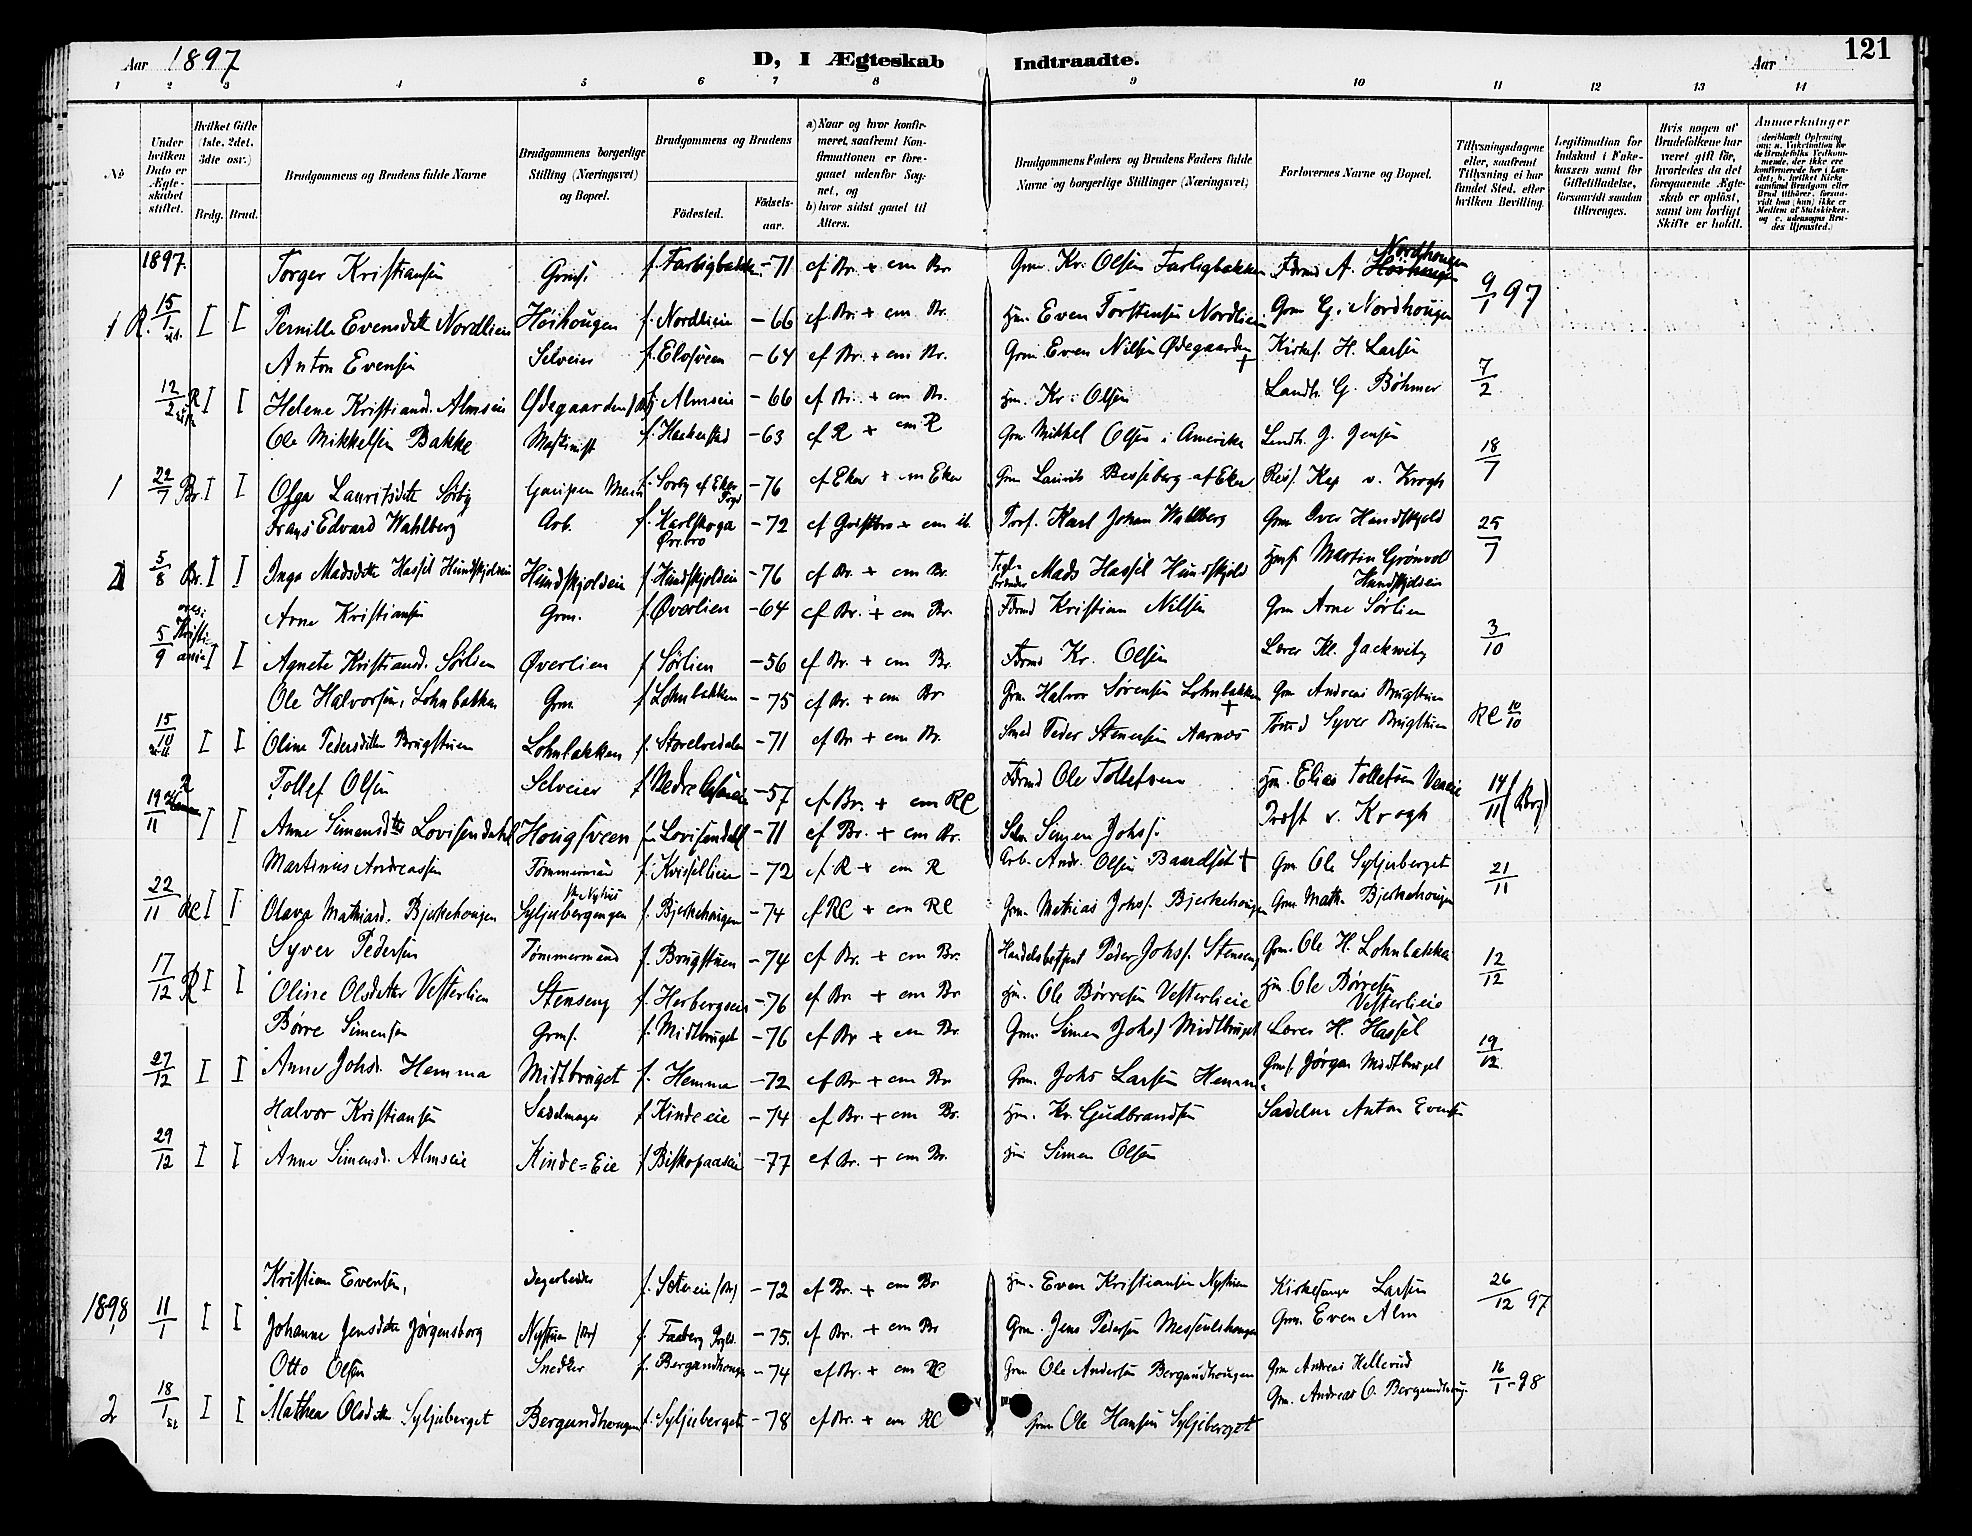 Aar 1897
D, I Ægteskab Indtraadte.
Aar
121
1 2 3 4 5 6 7 8 9 10 11 12 13 14
No
Under hvilken Dato er Ægteskabet stiftet.
Hvilket Gifte (1ste, 2det, 3die osv.)
Brdg. Brud.
Brudgommens og Brudens fulde Navne
Brudgommens borgerlige Stilling (Næringsvei) og Bopæl.
Brudgommens og Brudens
Fødested.
Fødselsaar.
a) Naar og hvor konfirmeret, saafremt Konfirmationen er foregaaet udenfor Sognet, og
b) hvor sidst gaaet til Alters.
Brudgommens Faders og Brudens Faders fulde Navne og borgerlige Stillinger (Næringsvei)
Forlovernes Navne og Bopæl.
Tillysningsdagene eller, saafremt Tillysning ei har fundet Sted, efter hvilken Bevilling.
Legitimation for Indskud i Enkekassen samt for Giftetilladelse, forsaavidt saadan tiltrænges.
Hvis nogen af Brudefolkene har været gift før, hvorledes da det foregaaende Ægteskab er opløst, samt om lovligt Skifte er holdt.
Anmærkninger
(deriblandt Oplysning om: a. Vakcination for de Brudefolks Vedkommende, der ikke ere konfirmerede her i Landet; b. hvilket Kirkesamfund Brudgom eller Brud tilhører, forsaavidt han (hun) ikke er Medlem af Statskirken, og c. udensogns Brudes Hjemsted.)
1897. Torger Kristiansen f. Farligbakken -71 cf Br. + cm Br. Grm. Kr. Olsen Farligbakken A. Nordhougen
1 R. 15/1 I I Pernille Evensdtr Nordlien Höihougen f. Nordlieie -66 cf. Br. + cm Br. Hm. Even Torstensen Nordlien Grm G. Nordhougen 9/1 97
Anton Evensen Selveier f. Elvsveen -64 cf Br. + cm Br. Grm Even Nilsen Ødegaarden + Kirkes. H. Larsen
12/2 R I I Helene Kristiansd. Almseie Ødegaarden f Almseie -66 cf Br. + cm Br. Hm. Kr. Olsen Landh. G. Böhmer 7/2
Ole Mikkelsen Bakke Maskinist f. -63 cf R + cm R Grm Mikkel Olsen i Amerika Landh. J. Jensen
1 22/7 Br. I I Olga Lauritsdtr Sörby f. Sorby af Eker -76 cf Eker + cm Eker Grm Laurits Besseberg af Eker Res. Kap v. Krogh 18/7
Frans Edvard Wahlberg Arb. f. Karlskoga Örebro -72 cf + cm Karl Johan Wahlberg Grm Iver Hundskjold
2 5/8 Br. I I Inga Madsdtr Hassel Hundskjoldeie Hundskjoldeie f. Hundskjoldeie -76 cf Br. + cm Br. Mads Hassel Hundskjold Martin Grönvold Hundskjoldeie 25/7
Arne Kristiansen Grm. f. Øverlien -64 cf Br. + cm Br. Kristian Nilsen Grm Arne Sørlien
5/9 I I Agnete Kristiansd. Sørlien Øverlien f Sørlien -56 cf Br. + cm Br. Kr. Olsen Lærer Kl. Jackwitz 3/10
Ole Halvorsen Lohnbakken Grm f Lohnbakken -75 cf Br. + cm Br Grm. Halvor Sörensen Lohnbakken + Grm Andreas Brugstuen
15/10 I I Oline Pedersdtr Brugstuen Lohnbakken f. Storelvedalen -71 cf Br + cm Br. Smed Peder Stenersen Aarnæs Syver Brugstuen RC 10/10
Tollef Olsen Selveier f Nedre -57 cf Br. + cm RC Ole Tollefsen Hm. Elias Tollefsen
19/11 I I Anne Simensdtr Lovisendahl Hougsveen Lovisendahl -71 cf Br. + cm Br. Simen Johs. Prost v. Krogh 14/11 (Br)
Martinus Andreassen Tømmermand f. Kvisellien -72 cf R + cm R Arb. Andr. Olsen Baardset + Grm Ole Syljuberget
22/11 RC I I Olava Mathiasd. Bjerkehougen Syljubergengen f. Bjerkehougen -74 cf RC + cm RC Grm. Mathias Johs. Bjerkehougen Grm. Math. Bjerkehougen 21/11
Syver Pedersen Tømmermand f. Brugstuen -74 cf Br. + cm Br. Peder Johs. Stenseng Grm. Ole H. Lohnbakken
17/12 R I I Oline Olsdtr Vesterlien Stenseng f. Herbergseie -76 cf Br. + cm Br Hm. Ole Börresen Vesterlieie Hm. Ole Börresen Vesterlieie 12/12
Børre Simensen Grms. f. Midtbruget -76 cf Br + cm Br Grm. Simen Johs. Midtbruget Lærer H. Hassel
27/12 I I Anne Johsd. Hemma Midtbruget f. Hemma -72 cf Br + cm Br Grm. Johs Larsen Hemma Grms Jörgen Midtbruget 19/12
Halvor Kristiansen Sadelmager f. Kindeeie -74 cf Br. + cm Br. Hm. Kr. Gudbrandsen Sadelm Anton Evensen
29/12 I I Anne Simensd. Almseie Kinde=Eie f. Biskopaaseie -77 cf Br. + cm Br. Hm Simen Olsen
Kristian Evensen, Dagarbeider f. Sætereie (Br) -72 cf Br. + cm Br Hm. Even Kristiansen Nystuen Kirkesanger Larsen
1898 1 11/1 I I Johanne Jensdtr Jørgensborg Nystuen (Br) f. Faaberg Prgld. -75. cf Br. + cm Br Grm. Jens Pedersen Messeulshougen Grm. Even Alm 26/12 97
Otto Olsen Snedker f. Bergundhougen -74 cf Br. + cm RC Grm Ole Andersen Bergundhougen Grm Andreas Hellerud
2 18/1 I I Mathea Olsdtr Syljuberget Bergundhougen f. Syljuberget -78 cf Br. + cm RC Grm Ole Hansen Syljuberget Grm. Andreas O. Bergundhoug. 16/1-98